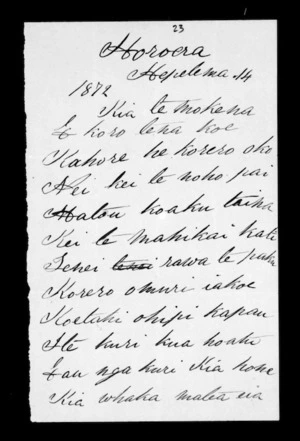 23
Horoera
Hepetema .14
1872
Kia te mokena
E koro tena koe
Kahore he korero oko
Nei kei te noho pai
Matou koaku taina
Kei te mahikai kati
Tenei tenei rawa te putake
Korero omuri iakoe
Koetahi ohipi kapau
Ite kuri kua hoatu
Eau nga kuri Kia hone
Kia whaka matea eia